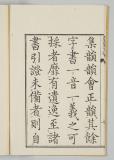 集韻韻會正韻其餘
字書一音一義之可
採者靡有遺逸至諸
書引證未備者則自